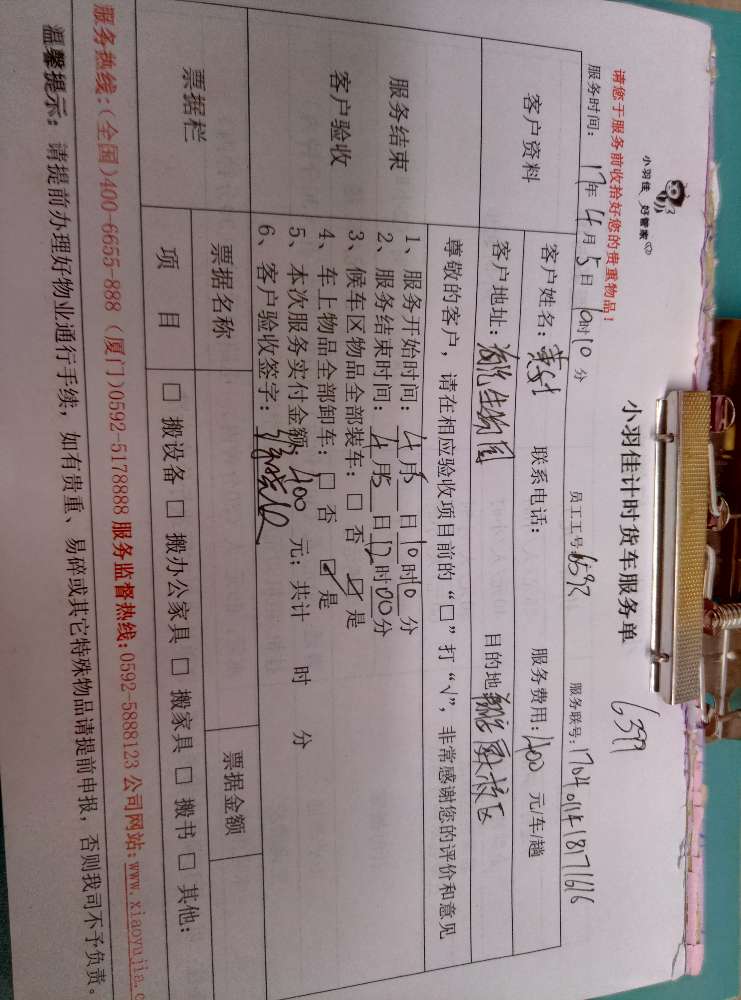 小羽佳 好管家
小羽佳计时货车服务单
6399
请您于服务前收拾好您的贵重物品!
服务时间: 17年 4月 5日 10时10分 员工工号 6592 服务联号: 1704011418171616
客户资料
客户姓名: 联系电话: 服务费用: 400 元/车/趟
客户地址: 海沧生物园 目的地
服务结束
客户验收
尊敬的客户,请在相应验收项目前的“□”打“√”,非常感谢您的评价和意见
1、服务开始时间: 4月5日10时10分
2、服务结束时间: 4月5日12时00分
3、候车区物品全部装车: □ 否 ☑ 是
4、车上物品全部卸车: □ 否 ☑ 是
5、本次服务实付金额: 400 元; 共计 时 分
6、客户验收签字:
票据栏
票据名称 票据金额
项 目 □ 搬设备 □ 搬办公家具 □ 搬家具 □ 搬书 □ 其他:
服务热线:(全国)400-6655-888 (厦门)0592-5178888 服务监督热线:0592-5888123 公司网站:www.xiaoyujia.c
温馨提示: 请提前办理好物业通行手续, 如有贵重、易碎或其它特殊物品请提前申报, 否则我司不予负责。